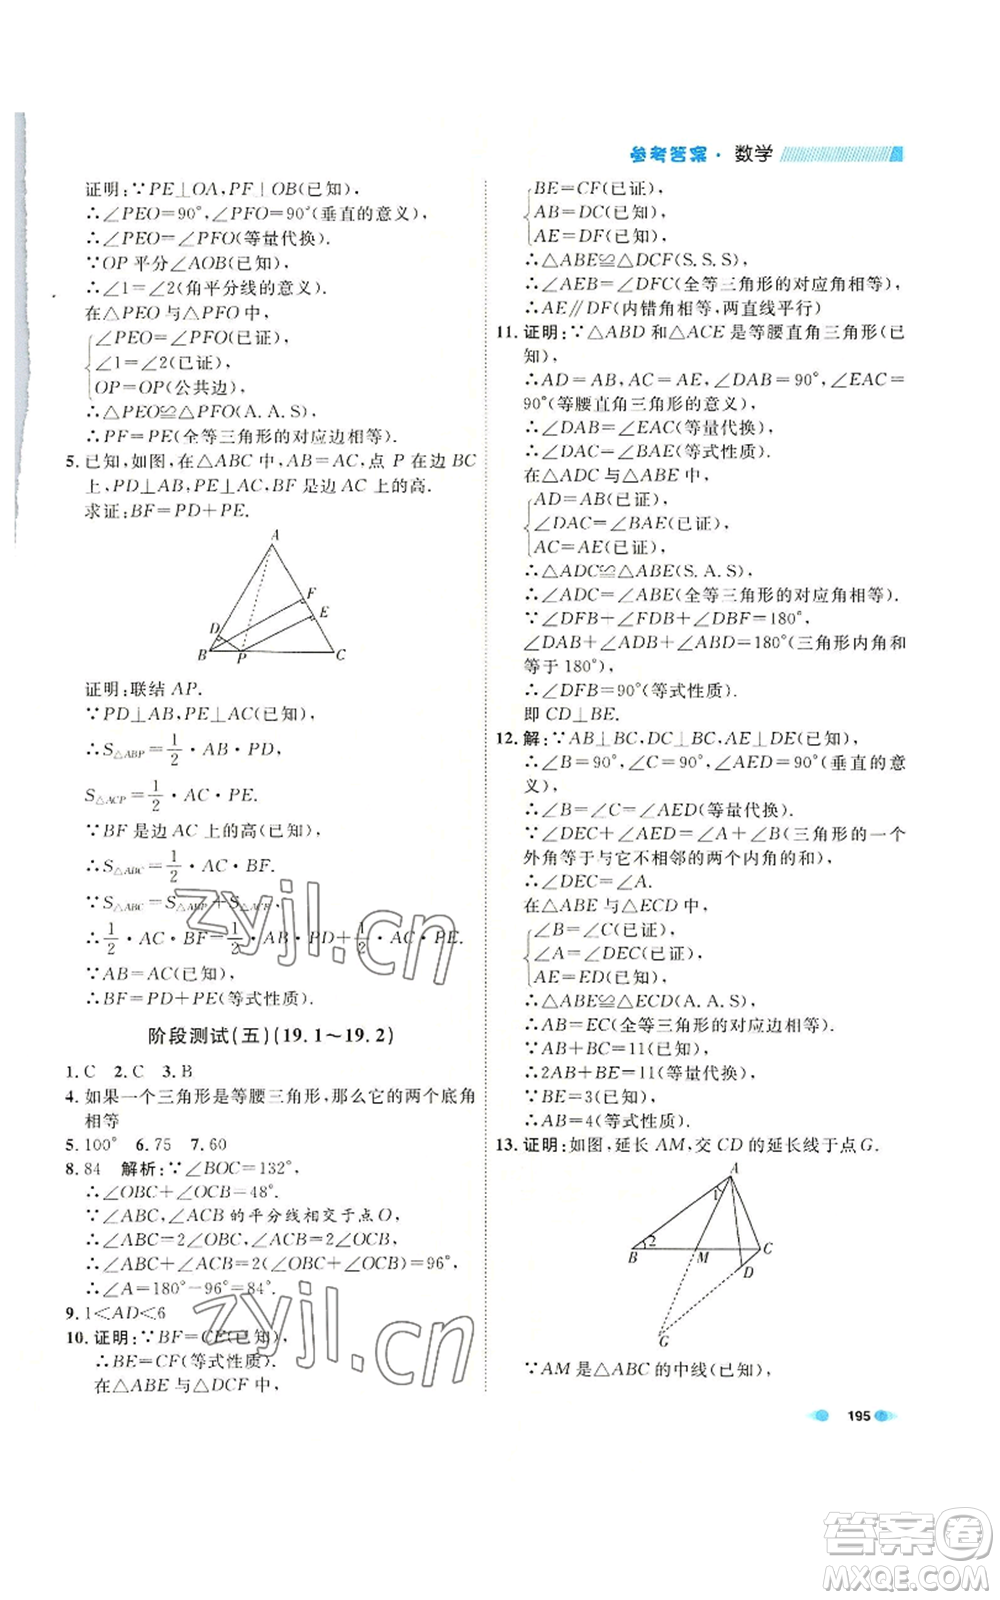 参考答案·数学
证明:∵PE⊥OA,PF⊥OB(已知),
∴∠PEO=90°,∠PFO=90°(垂直的意义),
∴∠PEO=∠PFO(等量代换).
∵OP平分∠AOB(已知),
∴∠1=∠2(角平分线的意义).
在△PEO与△PFO中,
∠PEO=∠PFO(已证),
∠1=∠2(已证),
OP=OP(公共边),
∴△PEO≌△PFO(A.A.S),
∴PF=PE(全等三角形的对应边相等).
5.已知,如图,在△ABC中,AB=AC,点P在边BC
上,PD⊥AB,PE⊥AC,BF是边AC上的高.
求证:BF=PD+PE.
A
F
E
D
B
P
C
证明:联结AP.
∵PD⊥AB,PE⊥AC(已知),
∴S△ABP=1/2·AB·PD,
S△ACP=1/2·AC·PE.
∵BF是边AC上的高(已知),
∴S△ABC=1/2·AC·BF.
∵S△ABC=S△ABP+S△ACP,
∴1/2·AC·BF=1/2·AB·PD+1/2·AC·PE.
∵AB=AC(已知),
∴BF=PD+PE(等式性质).
阶段测试(五)(19.1~19.2)
1.C 2.C 3.B
4.如果一个三角形是等腰三角形,那么它的两个底角
相等
5.100° 6.75 7.60
8.84 解析:∵∠BOC=132°,
∴∠OBC+∠OCB=48°.
∵∠ABC,∠ACB的平分线相交于点O,
∴∠ABC=2∠OBC,∠ACB=2∠OCB,
∴∠ABC+∠ACB=2(∠OBC+∠OCB)=96°,
∴∠A=180°-96°=84°.
9.1<AD<6
10.证明:∵BF=CE(已知),
∴BE=CF(等式性质).
在△ABE与△DCF中,
BE=CF(已证),
AB=DC(已知),
AE=DF(已知),
∴△ABE≌△DCF(S.S.S),
∴∠AEB=∠DFC(全等三角形的对应角相等),
∴AE∥DF(内错角相等,两直线平行)
11.证明:∵△ABD和△ACE是等腰直角三角形(已
知),
∴AD=AB,AC=AE,∠DAB=90°,∠EAC=
90°(等腰直角三角形的意义),
∴∠DAB=∠EAC(等量代换),
∴∠DAC=∠BAE(等式性质).
在△ADC与△ABE中,
AD=AB(已证),
∠DAC=∠BAE(已证),
AC=AE(已证),
∴△ADC≌△ABE(S.A.S),
∴∠ADC=∠ABE(全等三角形的对应角相等).
∵∠DFB+∠FDB+∠FBD=180°,
∠DAB+∠ADB+∠ABD=180°(三角形内角和
等于180°),
∴∠DFB=90°(等式性质).
即CD⊥BE.
12.解:∵AB⊥BC,DC⊥BC,AE⊥DE(已知),
∴∠B=90°,∠C=90°,∠AED=90°(垂直的意
义),
∴∠B=∠C=∠AED(等量代换).
∵∠DEC+∠AED=∠A+∠B(三角形的一个
外角等于与它不相邻的两个内角的和),
∴∠DEC=∠A.
在△ABE与△ECD中,
∠B=∠C(已证),
∠A=∠DEC(已证),
AE=ED(已知),
∴△ABE≌△ECD(A.A.S),
∴AB=EC(全等三角形的对应边相等).
∵AB+BC=11(已知),
∴2AB+BE=11(等量代换).
∵BE=3(已知),
∴AB=4(等式性质).
13.证明:如图,延长AM,交CD的延长线于点G.
A
1
B
2
M
C
D
G
∵AM是△ABC的中线(已知),
195
zyjl.cn
zyjl.cn
答案卷
MXQE.COM